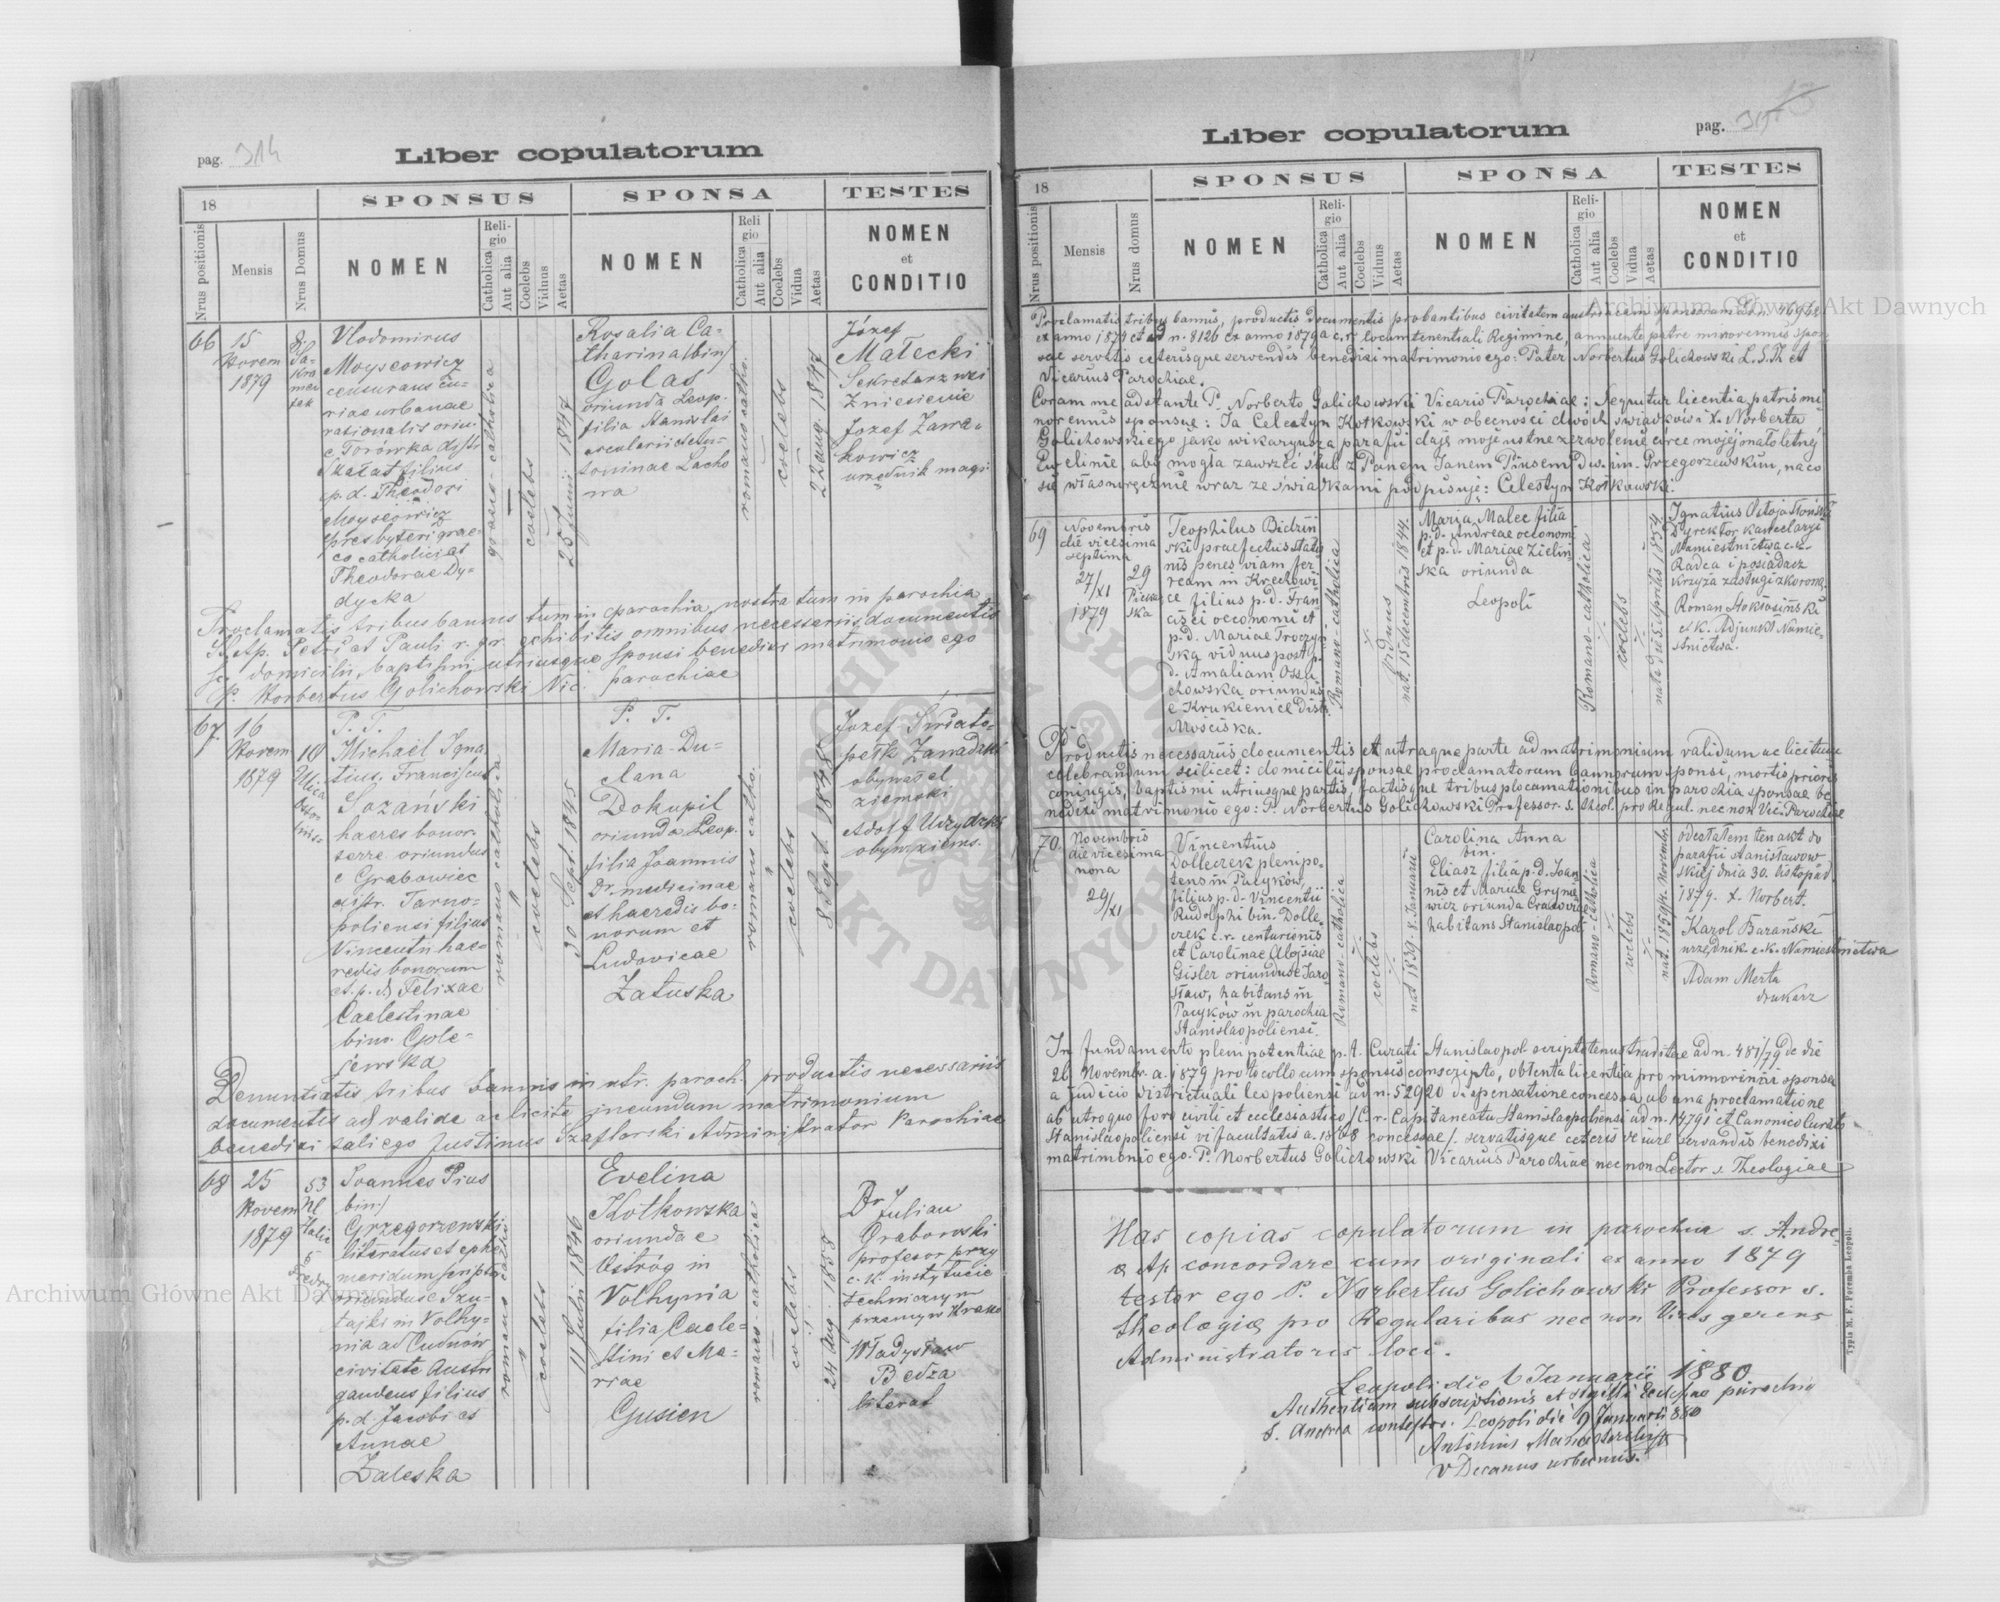 pag. 314
Liber copulatorum
18
SPONSUS
SPONSA
TESTES
Nrus positionis
Mensis
Nrus Domus
NOMEN
Religio
Catholica
Aut alia
Coelebs
Viduus
Aetas
NOMEN
Religio
Catholica
Aut alia
Coelebs
Vidua
Aetas
NOMEN
et
CONDITIO
66
15
Novem
1879
Vlodomirus
Moyseowicz
riae urbanae
rationalis oriu.
e Torówka distr
Skałat filius
p. d. Theodori
Moyseowicz
presbyteri grae-
co catholici et
Theodorae Dy-
dycka
graeco-catholica
coelebs
25 Junii 1847
Rosalia Ca-
tharina /bin/
Golas
oriunda Leop.
filia Stanislai
et An-
toninae Lacho
wa
romano catho.
coelebs
22 aug. 1847
Józef
Małecki
Sekretarz wsi
Zniesienie
Jozef Zawa-
kowicz
urzędnik magi:
Proclamatis tribus bannis tum in parochia nostra tum in parochia
St. Ap. Petri et Pauli r. gr. exhibitis omnibus necessariis documentis
sc. domicilii, baptismi utriusque sponsi benedixi matrimonio ego
P. Norbertus Golichowski Vic. parochiae
67
16
Novem
1879
18
Ulica
P. T.
Michael Igna
tius, Franciscus
Sozański
haeres bonor.
terre. oriundus
e Grabowiec
distr. Tarno-
poliensi filius
Vincentii hae-
redis bonorum
et p. d. Felixae
Caelestinae
bin. Gole-
jewska
romano catholica
coelebs
30 Sept. 1845
P. T.
Maria-Du-
clana
Dokupil
oriunda Leop.
filia Joannis
Dr. medicinae
et haeredis bo-
norum et
Ludovicae
Załuska
romano catho.
coelebs
8 Sept. 1848
Jozef Swiato-
pełk Zawadzki
obywatel
ziemski
Adolf Udrydzki
obyw. ziems.
Denuntiatis tribus bannis in utr. paroch. productis necessariis
documentis ad valide ac licite ineundum matrimonium
benedixi tali ego Justinus Szaflarski Administrator Parochiae
68
25
Novem
1879
53
Joannes Pius
bin/
Grzegorzewski
literatus et ephe
meridum scriptor
oriundus e Szu-
tajki in Volhy-
nia ad Cudnów
civitate Austri
gaudens filius
p. d. Jacobi et
Annae
Zaleska
romano catho
coelebs
11 Julii 1846
Evelina
Kotkowska
oriunda e
Ostróg in
Volhynia
filia Caele-
stini et Ma-
riae
Gusien
romano-catholica
coelebs
24 Aug. 1858
Dr Julian
Grabowski
profesor przy
c. k. instytucie
technicznym
przemy. w Krako
Władysław
Bełza
literat
pag. 315
Liber copulatorum
18
SPONSUS
SPONSA
TESTES
Nrus positionis
Mensis
Nrus domus
NOMEN
Religio
Catholica
Aut alia
Coelebs
Viduus
Aetas
NOMEN
Religio
Catholica
Aut alia
Coelebs
Vidua
Aetas
NOMEN
et
CONDITIO
Proclamatis tribus bannis, productis documentis probantibus civitatem austriacam sponsi
ex anno 1874 et ad n. 8126 ex anno 1879 a c. r. locumtenentiali Regimine, annuente patre minorennis spon
sae servatis ceterisque servandis benedixi matrimonio ego: Pater Norbertus Golichowski L. S. Th et
Vicarius Parochiae.
Coram me adstante P. Norberto Golichowski Vicario Parochiae: Sequitur licentia patris mi
norennis sponsae: Ja Celestyn Kotkowski w obecności dwóch świadków i X. Norberta
Golichowskiego jako wikaryusza parafii daję moje ustne zezwolenie córce mojej małoletniej
Ewelinie aby mogła zawrzeć ślub z Panem Janem Piusem Dw. im. Grzegorzewskim, na co
się własnoręcznie wraz ze świadkami podpisuję: Celestyn Kotkowski.
69
Novembris
die vicesima
septima
27/XI
1879
29
Piekar
ska
Teophilus Bidziń
ski praefectus statio
nis penes viam fer
ream in Krechowi
ce filius p. d. Fran
cisci oeconomi et
p. d. Mariae Troczyń
ska viduus post p.
d. Amaliam Osso
chowska oriundus
e Krukienice Dist.
Mościska.
Romano-catholica
viduus
nat. 15 decembris 1844
Maria Malec filia
p. d. Andreae oeconomi
et p. d. Mariae Zielin
ska oriunda
Leopoli
Romano-catholica
coelebs
nata die 5. Aprilis 1854
Ignatius Ostoja Słoński
Dyrektor kancelaryi
Namiestnictwa c. k.
Radca i posiadacz
krzyża zasługi z koroną.
Roman Stokłosiński
c. k. Adjunkt Namie-
stnictwa.
Productis necessariis documentis et utraque parte ad matrimonium validum ac licitum
celebrandum scilicet: domicilii sponsae proclamatorum bannorum sponsi, mortis prioris
coniugis, baptismi utriusque partis, factisque tribus plocamationibus in parochia sponsae be
nedixi matrimonio ego: P. Norbertus Golichowski Professor s. theol. pro Regul. nec non Vic. Parochiae
70.
Novembris
die vicesima
nona
29/XI
Vincentius
Dolleczek plenipo-
tens in Pacyków,
filius p. d. Vincentii
Rudolphi bin. Dolle-
czek c. r. centurionis
et Carolinae Aloysiae
Gisler oriundus e Jaro
sław, habitans in
Pacyków in parochia
Stanislaopoliensi
Romano-catholica
coelebs
nat. 1839. 8. Januarii
Carolina Anna
bin.
Eliasz filia p. d. Joan
nis et Mariae Gryne
wicz oriunda Cracovia
habitans Stanislaopoli
Romano-catholica
coelebs
nat. 1859 Novemb.
odesłałem ten akt do
parafii stanisławow-
skiej dnia 30. listopad.
1879. X. Norbert.
Karol Barański
urzędnik c. k. Namiestnictwa
Adam Merta
drukarz
In fundamento plenipotentiae p. t. Curati Stanislaopol. scriptotenus traditae ad n. 481/79 de die
26 Novembr. a. 1879 protocollo cum sponsis conscripto, obtenta licentia pro minorenni sponsa
a judicio districtuali leopoliensi ad n. 52920 dispensatione concessa ab una proclamatione
ab utroque foro civili et ecclesiastico /C. r. Capitaneatu Stanislaopoliensi ad n. 14791 et Canonico Curato
Stanislaopoliensi vi facultatis a. 1868 concessae/. servatisque ceteris de iure servandis benedixi
matrimonio ego. P. Norbertus Golichowski Vicarius Parochiae nec non Lector s. Theologiae
Has copias copulatorum in parochia s. Andre
ae Ap. concordare cum originali ex anno 1879
testor ego P. Norbertus Golichowski Professor s.
theologiae pro Regularibus nec non Vices gerens
Administratoris loci.
Leopoli die 6 Januarii 1880
Authentiam subscriptionis et sigilli Ecclesiae parochi
S. Andrea contestor. Leopoli die 9 Januarii 880
Antonius Manasterski
V Decanus urbanus.
Typis M. F. Poremba Leopoli.
Archiwum Główne Akt Dawnych
Archiwum Główne Akt Dawnych
ARCHIWUM GŁÓWNE AKT DAWNYCH